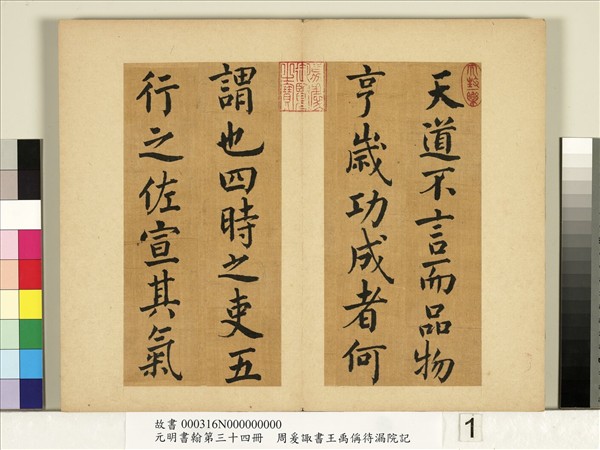 天道不言而品物
亨歲功成者何
謂也四時之吏五
行之佐宣其氣
故書 000316N000000000
元明書翰第三十四冊 周爰諏書王禹偁待漏院記
1